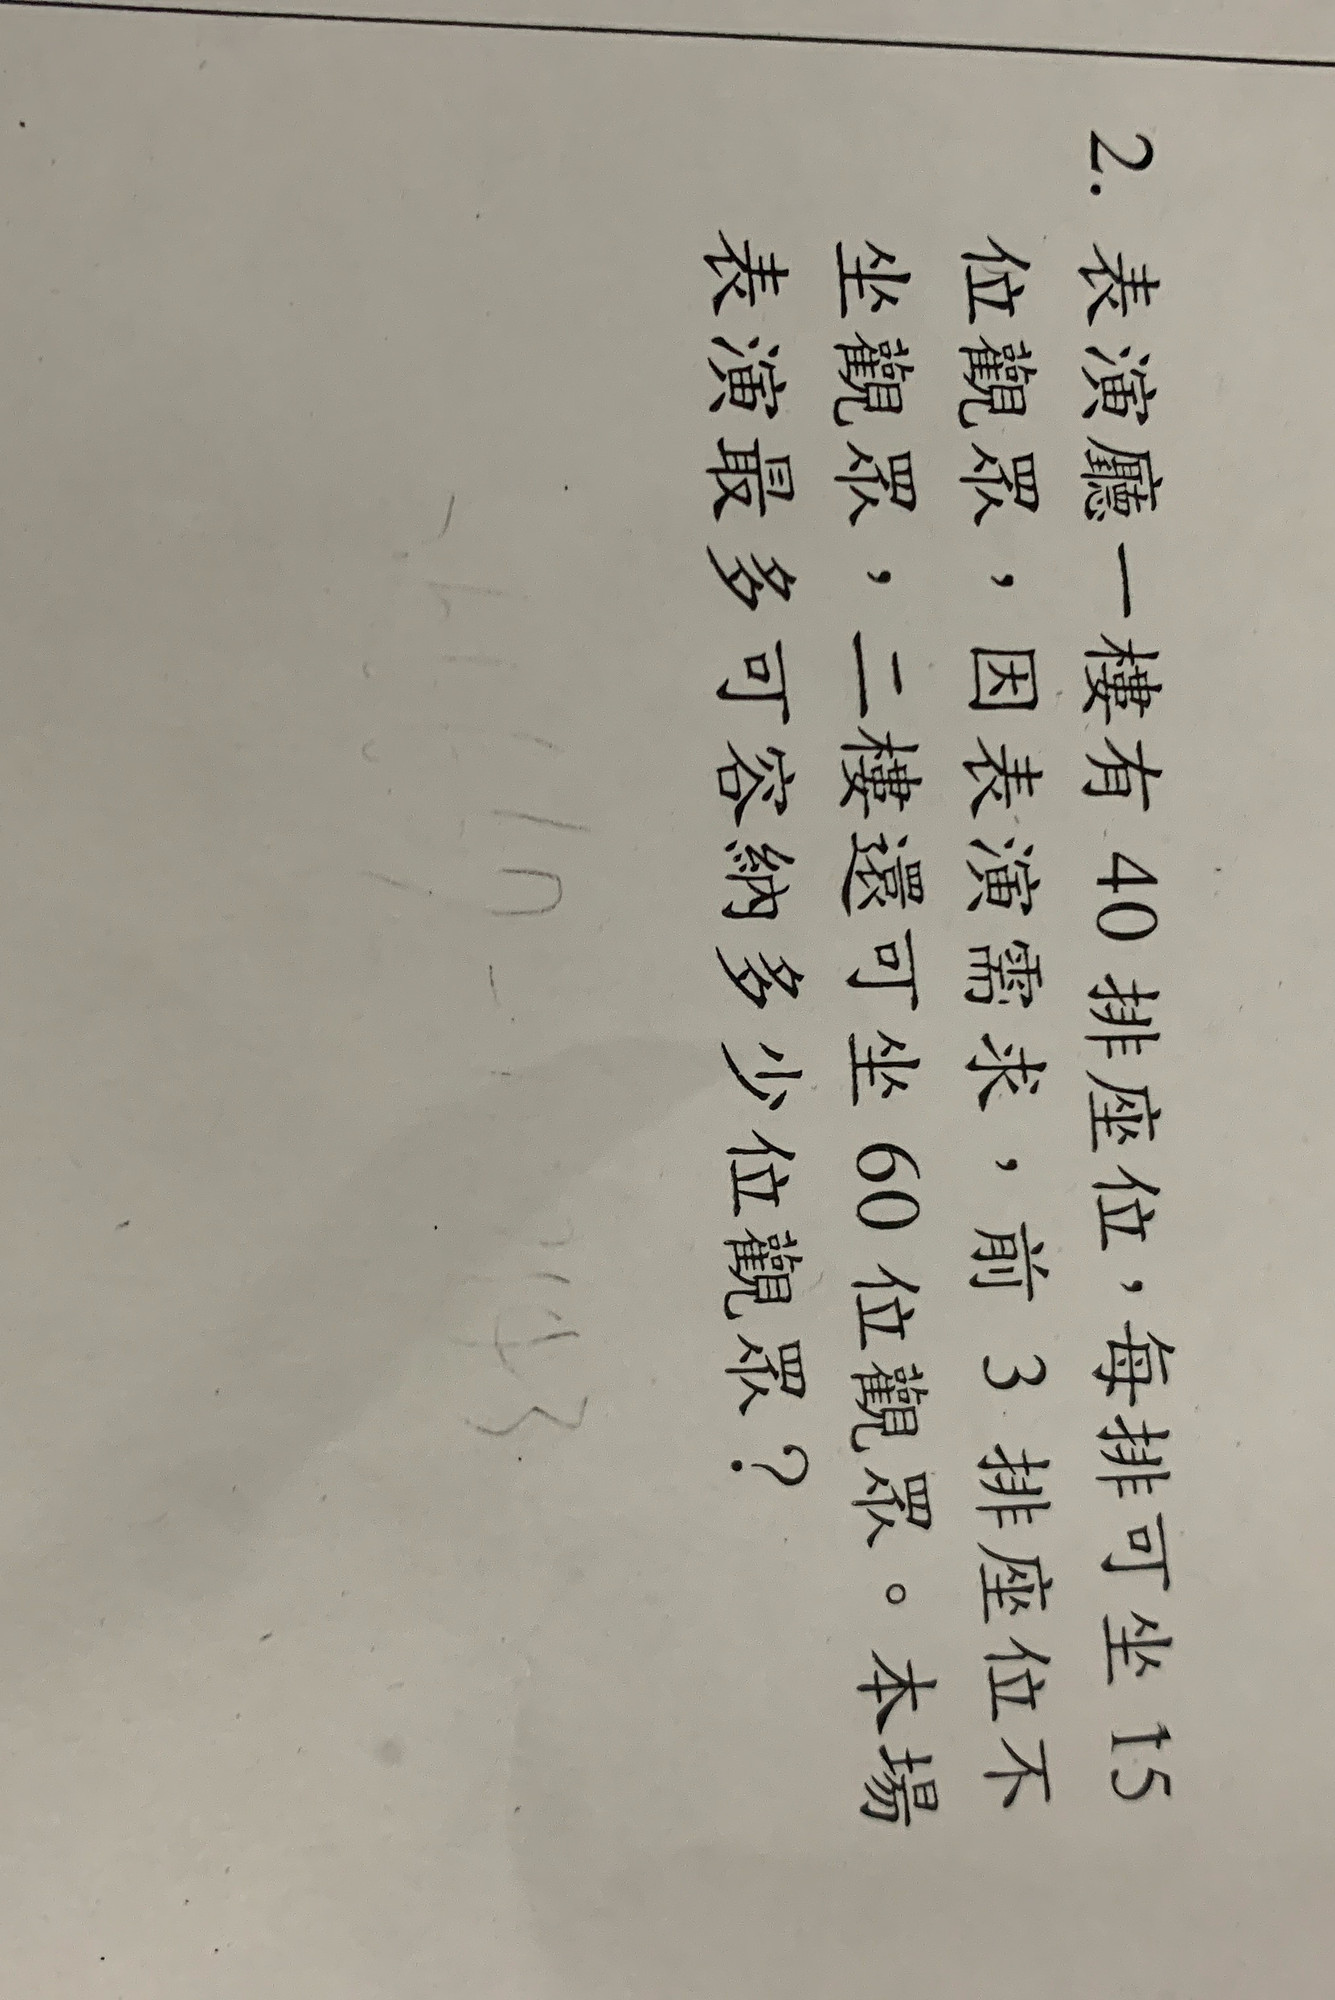 2. 表演廳一樓有 40 排座位，每排可坐 15
位觀眾，因表演需求，前 3 排座位不
坐觀眾，二樓還可坐 60 位觀眾。本場
表演最多可容納多少位觀眾？